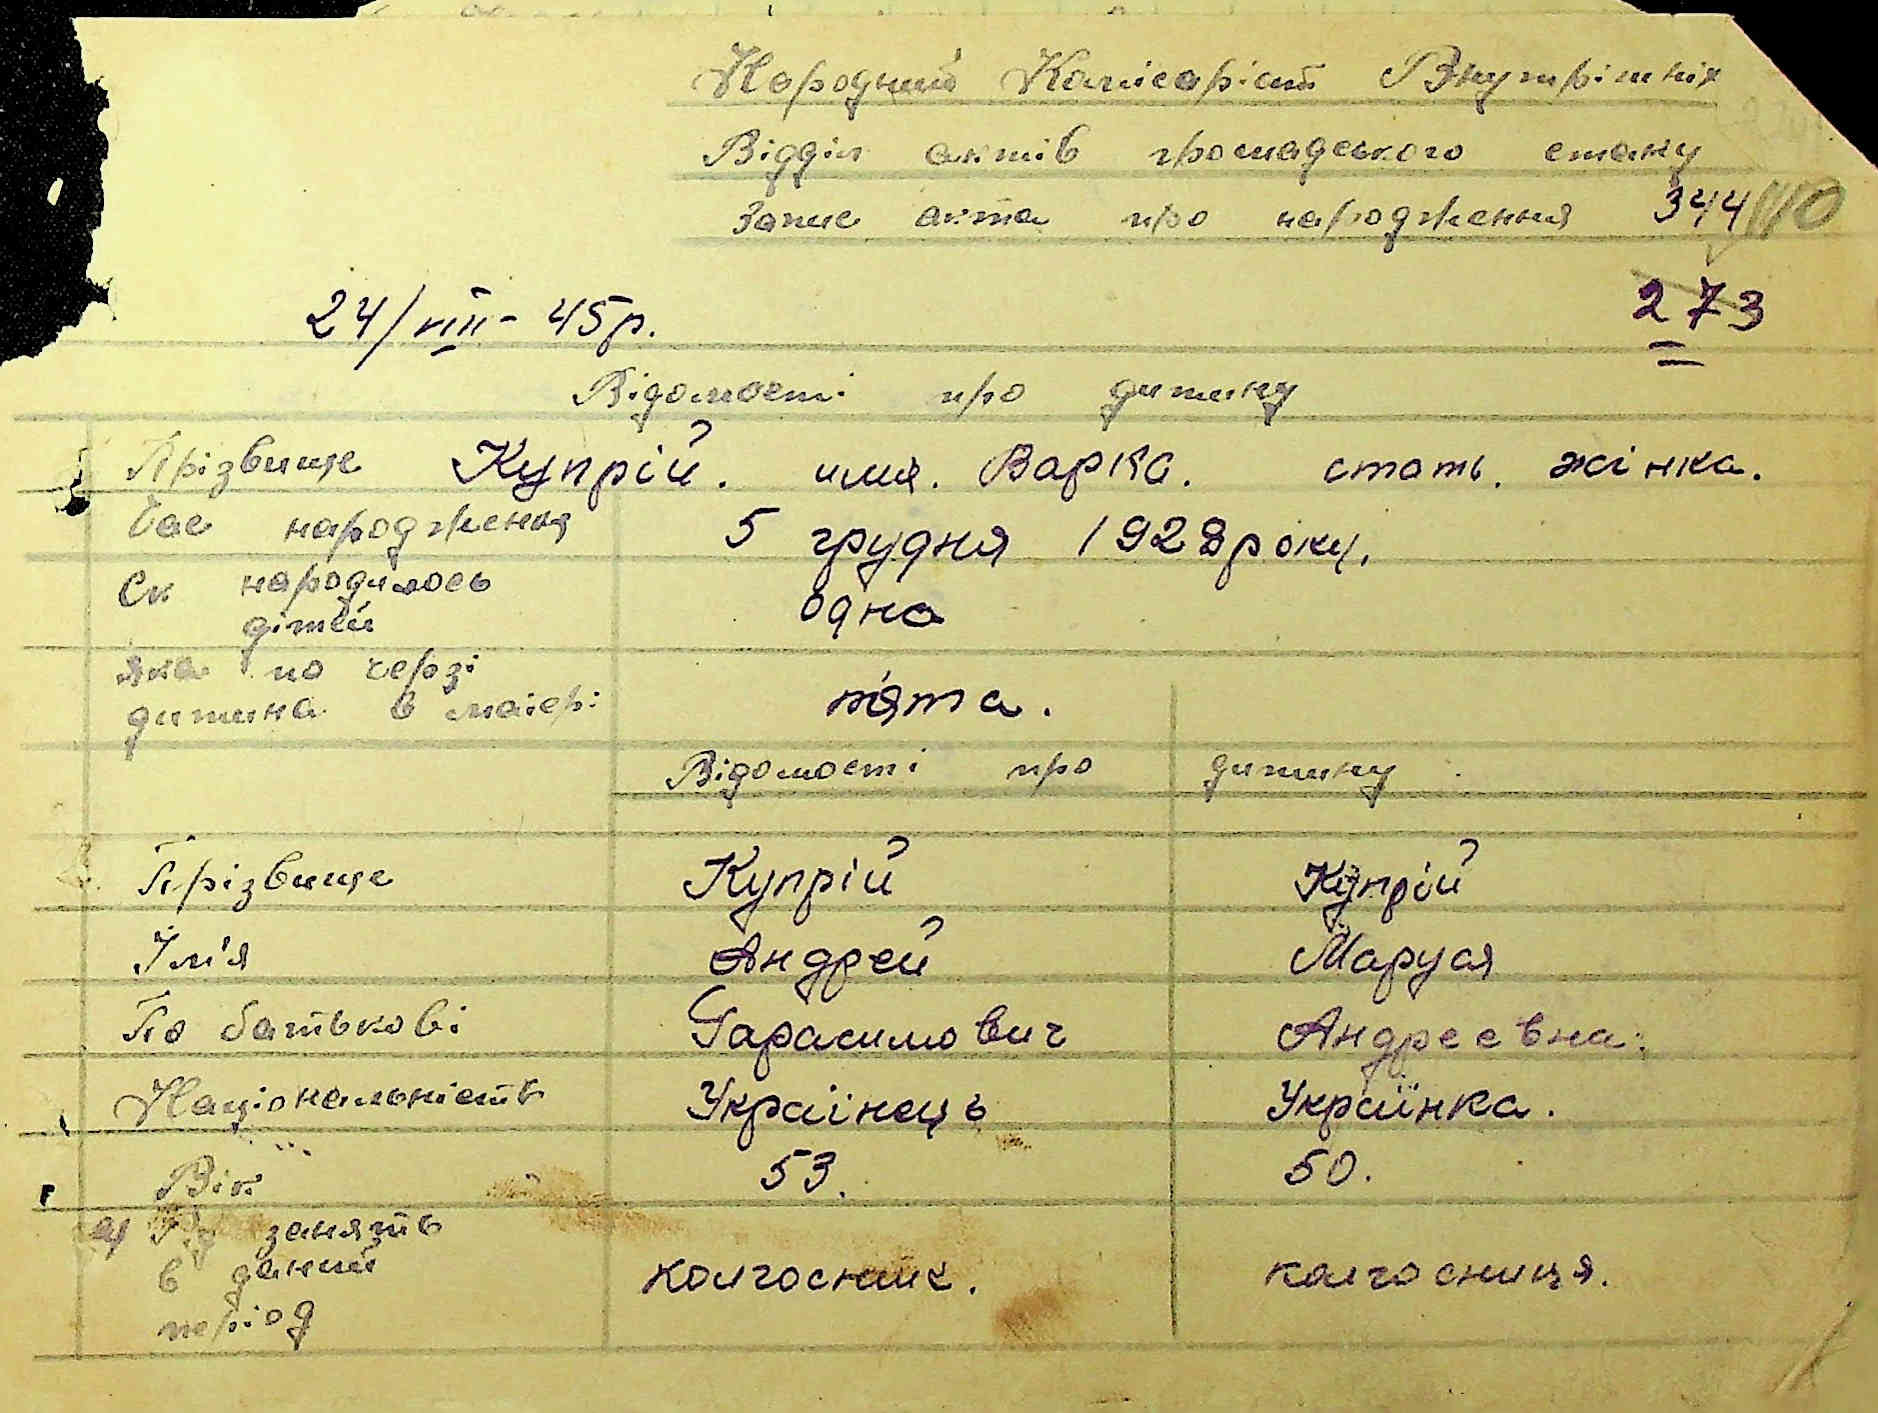 Народний Комісаріат Внутрішніх
Відділ актів громадського стану
Запис акта про народження 344
24/VIII - 45р.
273
Відомості про дитину
Прізвище Купрій. имя. Варка. стать. жінка.
Час народження 5 грудня 1928 року.
Ск народилось дітей одна
яка по черзі
дитина в матері пята.
Відомості про дитину
Прізвище Купрій Купрій
Ім'я Андрей Маруся
По батькові Гарасимович Андреевна.
Національність Украінець Українка.
Вік 53. 50.
занять
в даний колгосник. колгосниця.
період